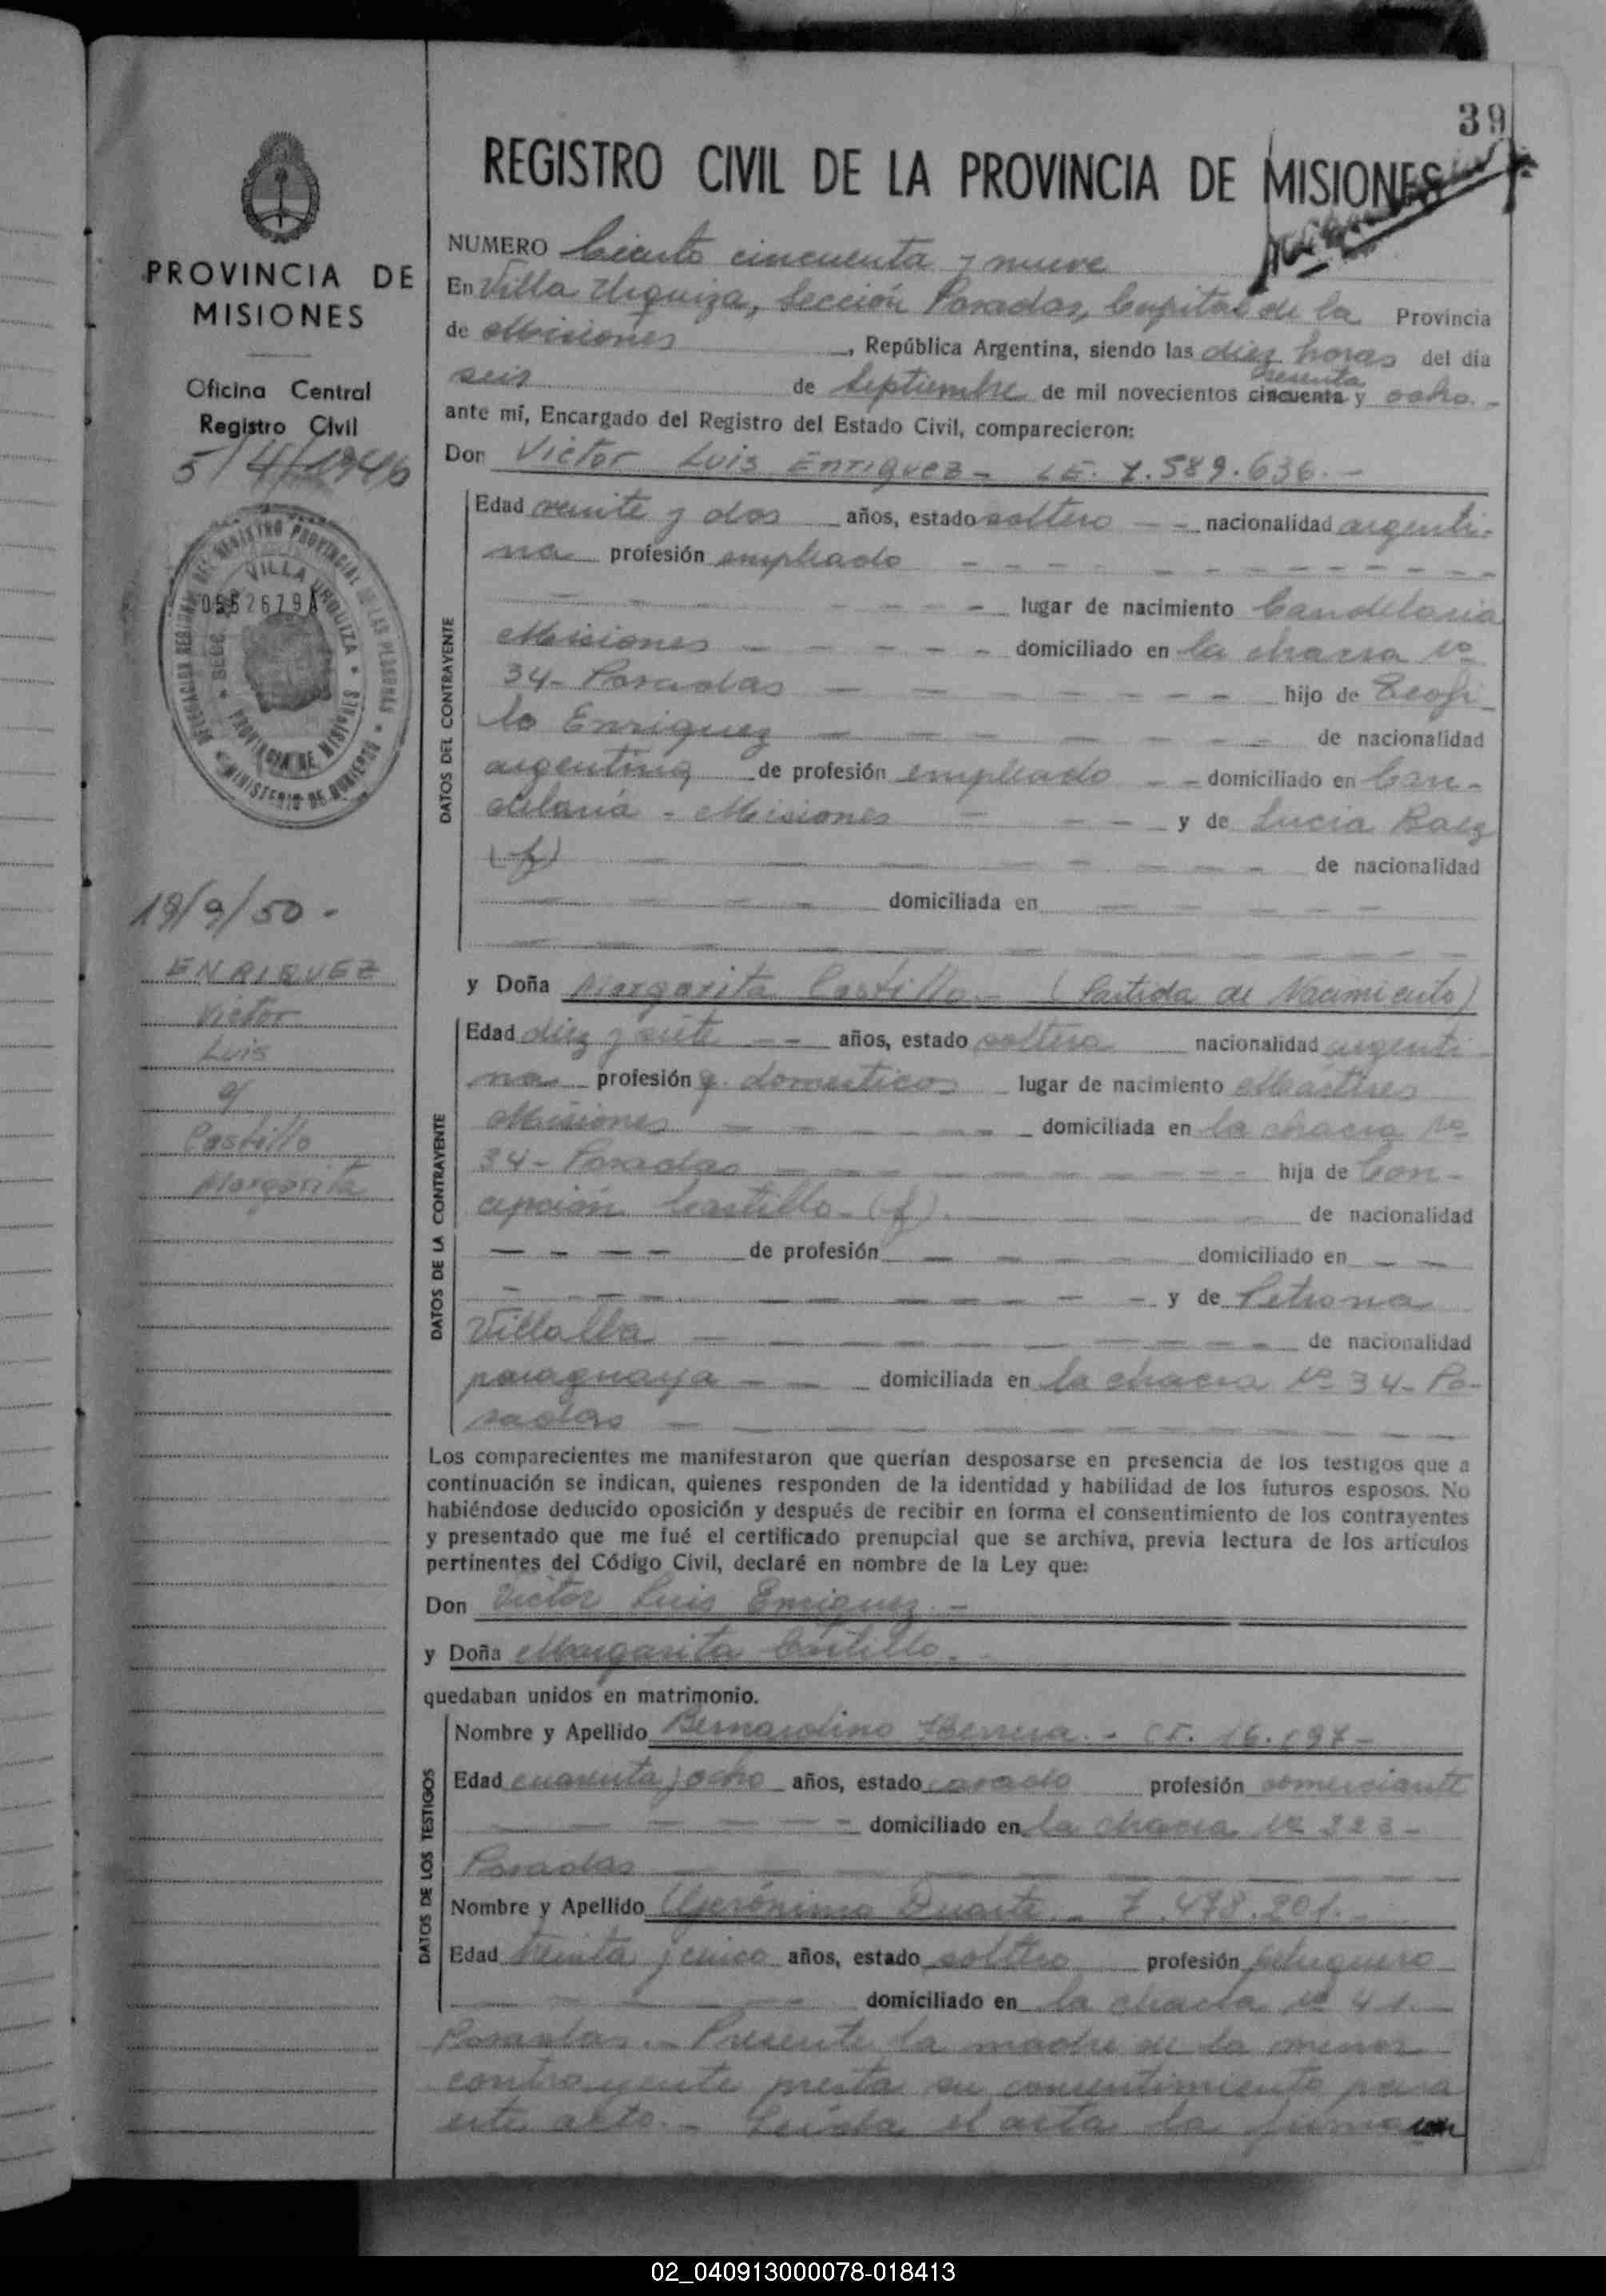 39
REGISTRO CIVIL DE LA PROVINCIA DE MISIONES
PROVINCIA DE
MISIONES
Oficina Central
Registro Civil
5/4/1946
DELEGACION REGIONAL DEL REGISTRO PROVINCIAL DE LAS PERSONAS
SECC. VILLA URQUIZA
0562679A
PROVINCIA DE MISIONES
MINISTERIO DE GOBIERNO
19/9/50.-
ENRIQUEZ
Victor
Luis
y
Castillo
Margarita
NUMERO Ciento cincuenta y nueve
En Villa Urquiza, Sección Posadas, Capital de la Provincia
de Misiones, República Argentina, siendo las diez horas del día
sesenta
seis de Septiembre de mil novecientos cincuenta y ocho.-
ante mí, Encargado del Registro del Estado Civil, comparecieron:
Don Victor Luis Enriquez - LE. 7.589.636.-
DATOS DEL CONTRAYENTE
Edad veinte y dos años, estado soltero - - nacionalidad argenti-
na profesión empleado - - -
- - - lugar de nacimiento Candelaria
Misiones - - - domiciliado en la chacra Nº
34- Posadas - - - hijo de Teofi
lo Enriquez - - - de nacionalidad
argentina de profesión empleado - - domiciliado en Can-
delaria - Misiones - - - y de Lucia Baez
(f) - - - de nacionalidad
- - - domiciliada en - - -
y Doña Margarita Castillo - (Partida de Nacimiento)
DATOS DE LA CONTRAYENTE
Edad diez y siete - - años, estado soltera nacionalidad argenti-
na profesión q. domesticos lugar de nacimiento Mártires
Misiones - - - domiciliada en la chacra Nº
34- Posadas - - - hija de Con-
cepción Castillo- (f). - - - de nacionalidad
- - - - de profesión - - - domiciliado en - -
- - - y de Petrona
Villalba - - - de nacionalidad
paraguaya - - domiciliada en la chacra Nº 34- Po-
sadas - - -
Los comparecientes me manifestaron que querían desposarse en presencia de los testigos que a
continuación se indican, quienes responden de la identidad y habilidad de los futuros esposos. No
habiéndose deducido oposición y después de recibir en forma el consentimiento de los contrayentes
y presentado que me fué el certificado prenupcial que se archiva, previa lectura de los artículos
pertinentes del Código Civil, declaré en nombre de la Ley que:
Don Victor Luis Enriquez.-
y Doña Margarita Castillo.-
quedaban unidos en matrimonio.
DATOS DE LOS TESTIGOS
Nombre y Apellido Bernardino Herrera.- CI. 16.197-
Edad cuarenta y ocho años, estado casado profesión comerciante
- - - domiciliado en la chacra Nº 223-
Posadas - - -
Nombre y Apellido Gerónimo Duarte.- 7.478.201.-
Edad treinta y cinco años, estado soltero profesión peluquero
- - - domiciliado en la chacra Nº 41.
Posadas.- Presente la madre de la menor
contrayente presta su consentimiento para
este acto.- Leída el acta la firman
02_040913000078-018413